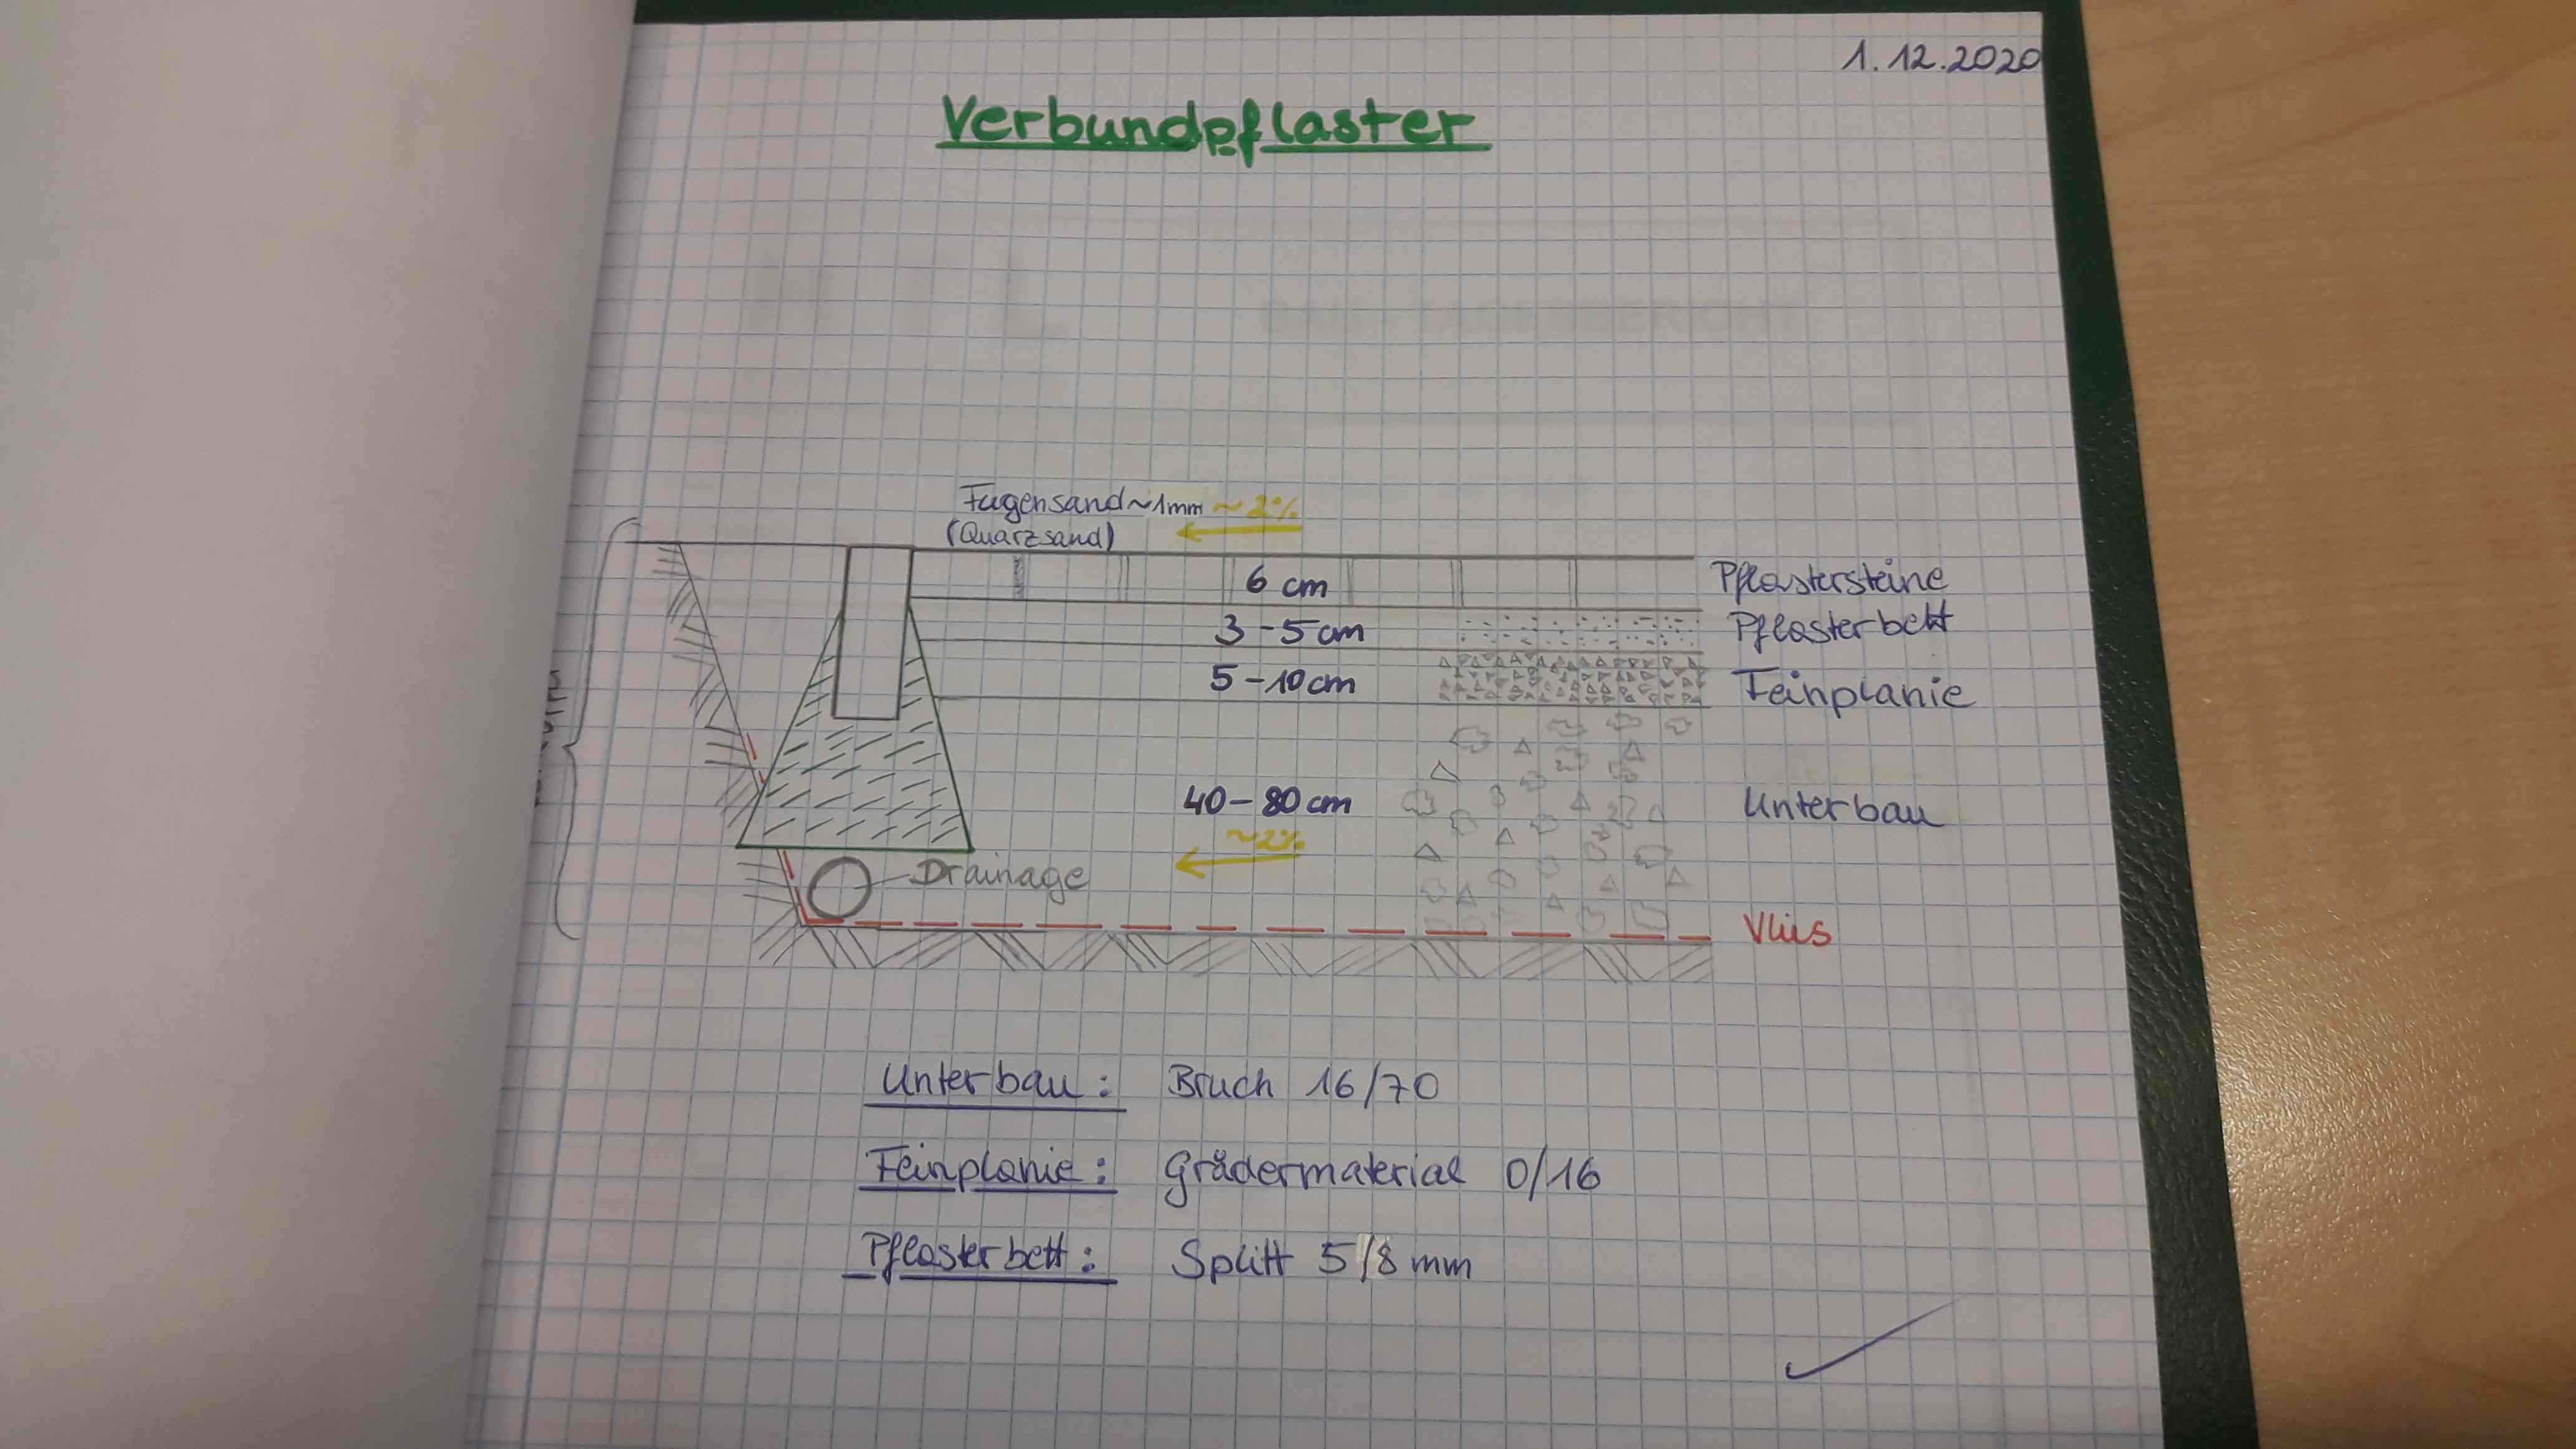 1.12.2020
Verbundpflaster
Fugensand ~1mm ~2%
(Quarzsand)
6 cm Pflastersteine
3-5 cm Pflasterbett
5-10 cm Feinplanie
40-80 cm Unterbau
~2%
Drainage
Vlies
Unterbau: Bruch 16/70
Feinplanie: Grädermaterial 0/16
Pflasterbett: Splitt 5/8 mm